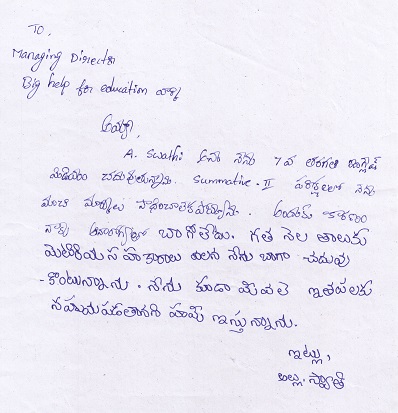 To,
Managing Director
Big help for education వార్కి
అయ్యా,
A. Swathi అను నేను 7వ తరగతి ఇంగ్లీష్
మీడియం చదువుతున్నాను. Summative-II పరీక్షలలో నేను
మంచి మార్కులు సాధించలేకపోయాను. అందుకు కారణం
నాకు ఆరోగ్యం బాగోలేదు. గత నెల తాలుకు
మెటీరియ సహకారాలు వలన నేను బాగా చదువు
-కొంటున్నాను. నేను కూడా మీ వలె ఇతరులకు
సహాయపడతానని హామీ ఇస్తున్నాను.
ఇట్లు,
అల్లు. స్వాతి